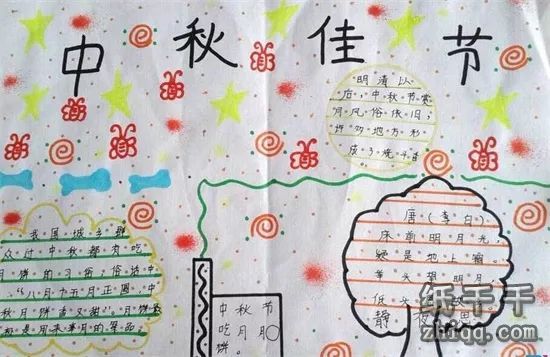 中秋佳节
明清以
后，中秋节赏
月风俗依旧，
许多地方形
成了烧斗香
我国城乡群
众过中秋都有吃
月饼的习俗，俗话中
“八月十五月正圆，中
秋月饼香又甜”。月饼最
初是用来拜月的祭品
中秋节
吃月
饼。
唐（李白）
床前明月光，
疑是地上霜。
举头望明月
低头故
静夜思
纸千千
zhiqq.com